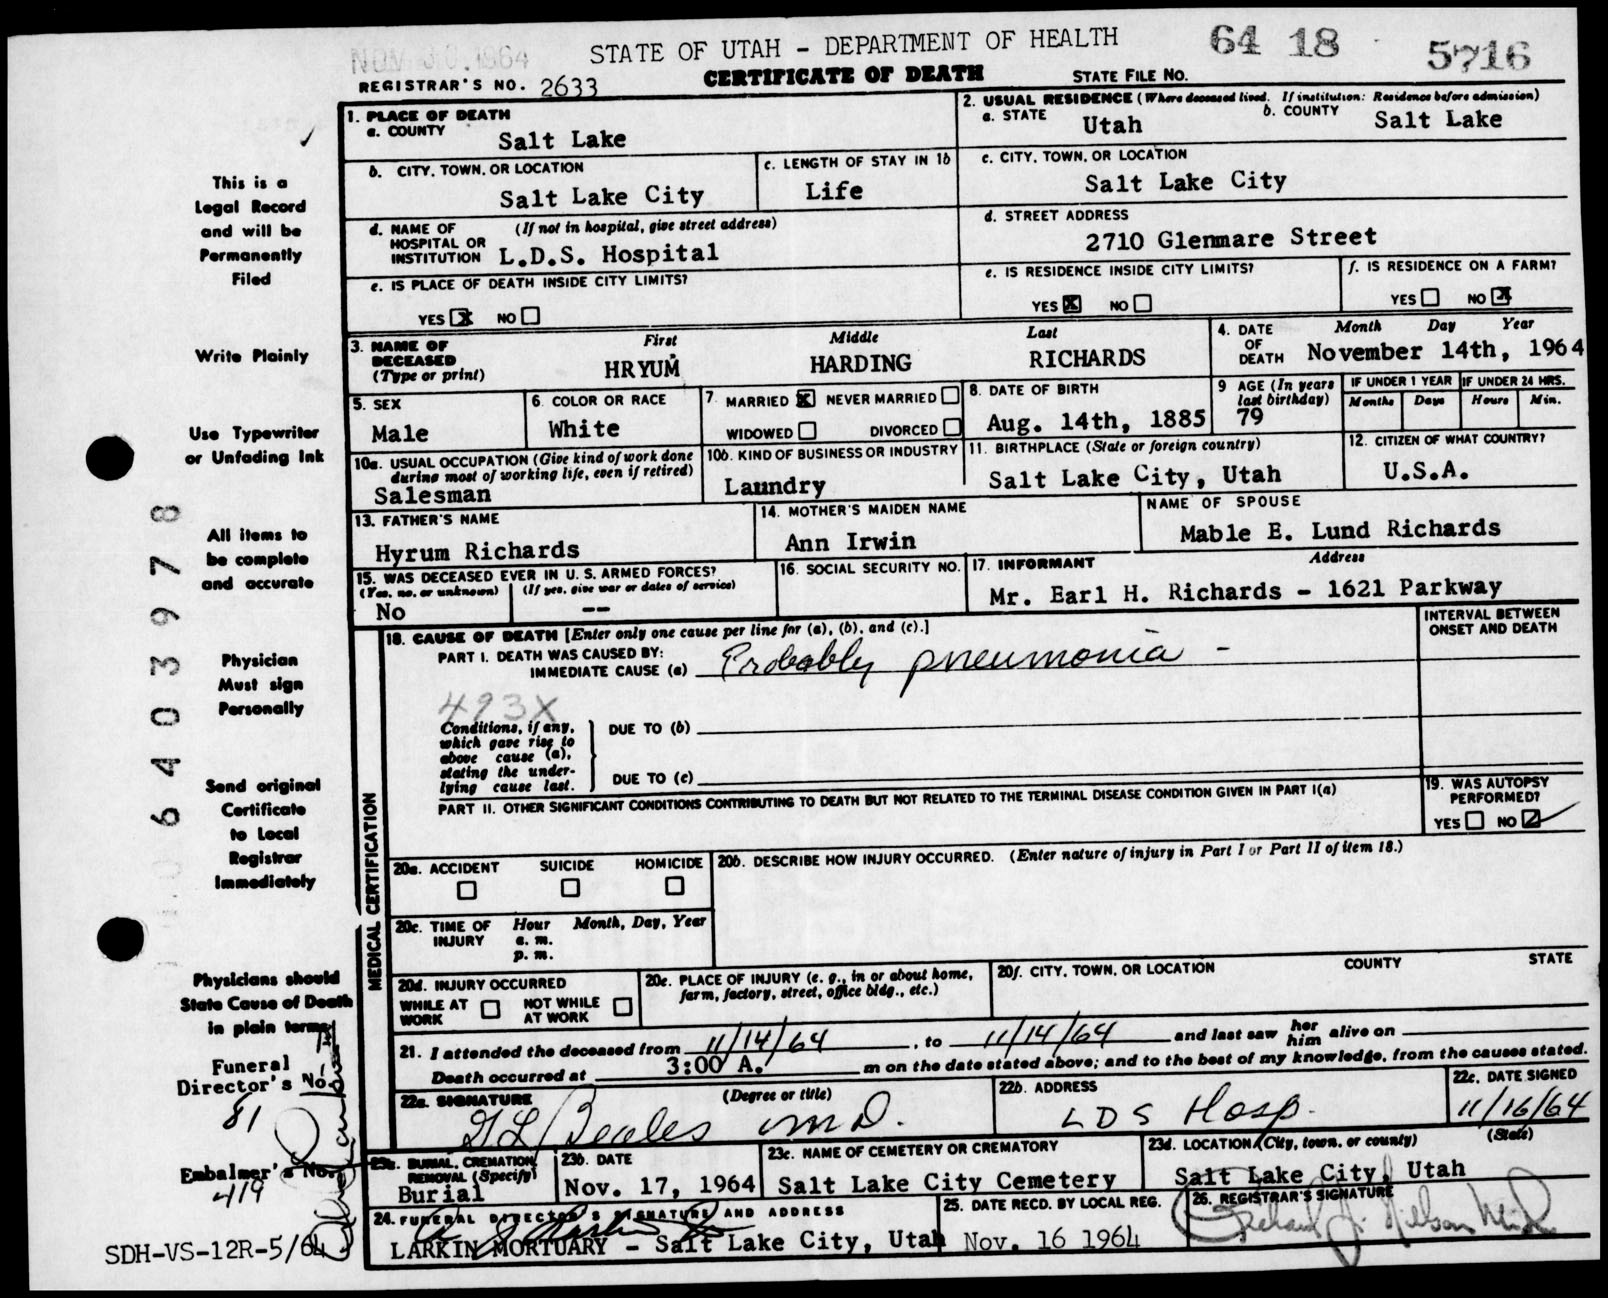 NOV 30.1964
STATE OF UTAH - DEPARTMENT OF HEALTH
64 18 5716
REGISTRAR'S NO. 2633
CERTIFICATE OF DEATH
STATE FILE NO.
1. PLACE OF DEATH
a. COUNTY
Salt Lake
2. USUAL RESIDENCE (Where deceased lived. If institution: Residence before admission)
a. STATE Utah b. COUNTY Salt Lake
b. CITY, TOWN, OR LOCATION
Salt Lake City
c. LENGTH OF STAY IN 1b
Life
c. CITY, TOWN, OR LOCATION
Salt Lake City
d. NAME OF HOSPITAL OR INSTITUTION (If not in hospital, give street address)
L.D.S. Hospital
d. STREET ADDRESS
2710 Glenmare Street
e. IS PLACE OF DEATH INSIDE CITY LIMITS?
YES X NO
e. IS RESIDENCE INSIDE CITY LIMITS?
YES X NO
f. IS RESIDENCE ON A FARM?
YES NO X
3. NAME OF DECEASED (Type or print)
First Middle Last
HRYUM HARDING RICHARDS
4. DATE OF DEATH Month Day Year
November 14th, 1964
5. SEX
Male
6. COLOR OR RACE
White
7. MARRIED X NEVER MARRIED
WIDOWED DIVORCED
8. DATE OF BIRTH
Aug. 14th, 1885
9 AGE (In years last birthday)
79
IF UNDER 1 YEAR
Months Days
IF UNDER 24 HRS.
Hours Min.
10a. USUAL OCCUPATION (Give kind of work done during most of working life, even if retired)
Salesman
10b. KIND OF BUSINESS OR INDUSTRY
Laundry
11. BIRTHPLACE (State or foreign country)
Salt Lake City, Utah
12. CITIZEN OF WHAT COUNTRY?
U.S.A.
13. FATHER'S NAME
Hyrum Richards
14. MOTHER'S MAIDEN NAME
Ann Irwin
NAME OF SPOUSE
Mable E. Lund Richards
15. WAS DECEASED EVER IN U. S. ARMED FORCES?
(Yes, no, or unknown) (If yes, give war or dates of service)
No --
16. SOCIAL SECURITY NO.
17. INFORMANT Address
Mr. Earl H. Richards - 1621 Parkway
MEDICAL CERTIFICATION
18. CAUSE OF DEATH [Enter only one cause per line for (a), (b), and (c).]
INTERVAL BETWEEN ONSET AND DEATH
PART I. DEATH WAS CAUSED BY:
IMMEDIATE CAUSE (a) Probably pneumonia -
493X
Conditions, if any, which gave rise to above cause (a), stating the underlying cause last.
DUE TO (b)
DUE TO (c)
PART II. OTHER SIGNIFICANT CONDITIONS CONTRIBUTING TO DEATH BUT NOT RELATED TO THE TERMINAL DISEASE CONDITION GIVEN IN PART I(a)
19. WAS AUTOPSY PERFORMED?
YES NO
20a. ACCIDENT SUICIDE HOMICIDE
20b. DESCRIBE HOW INJURY OCCURRED. (Enter nature of injury in Part I or Part II of item 18.)
20c. TIME OF INJURY Hour Month, Day, Year
a. m.
p. m.
20d. INJURY OCCURRED
WHILE AT WORK NOT WHILE AT WORK
20e. PLACE OF INJURY (e. g., in or about home, farm, factory, street, office bldg., etc.)
20f. CITY, TOWN, OR LOCATION COUNTY STATE
21. I attended the deceased from 11/14/64, to 11/14/64 and last saw her him alive on
Death occurred at 3:00 A. m on the date stated above; and to the best of my knowledge, from the causes stated.
22a. SIGNATURE (Degree or title)
G L Beales MD.
22b. ADDRESS
LDS Hosp.
22c. DATE SIGNED
11/16/64
23a. BURIAL, CREMATION, REMOVAL (Specify)
Burial
23b. DATE
Nov. 17, 1964
23c. NAME OF CEMETERY OR CREMATORY
Salt Lake City Cemetery
23d. LOCATION (City, town, or county) (State)
Salt Lake City, Utah
24. FUNERAL DIRECTOR'S SIGNATURE AND ADDRESS
LARKIN MORTUARY - Salt Lake City, Utah
25. DATE RECD. BY LOCAL REG.
Nov. 16 1964
26. REGISTRAR'S SIGNATURE
This is a
Legal Record
and will be
Permanently
Filed
Write Plainly
Use Typewriter
or Unfading Ink
All items to
be complete
and accurate
Physician
Must sign
Personally
Send original
Certificate
to Local
Registrar
Immediately
Physicians should
State Cause of Death
in plain terms
Funeral
Director's No.
81
Embalmer's No.
419
SDH-VS-12R-5/64
6403978